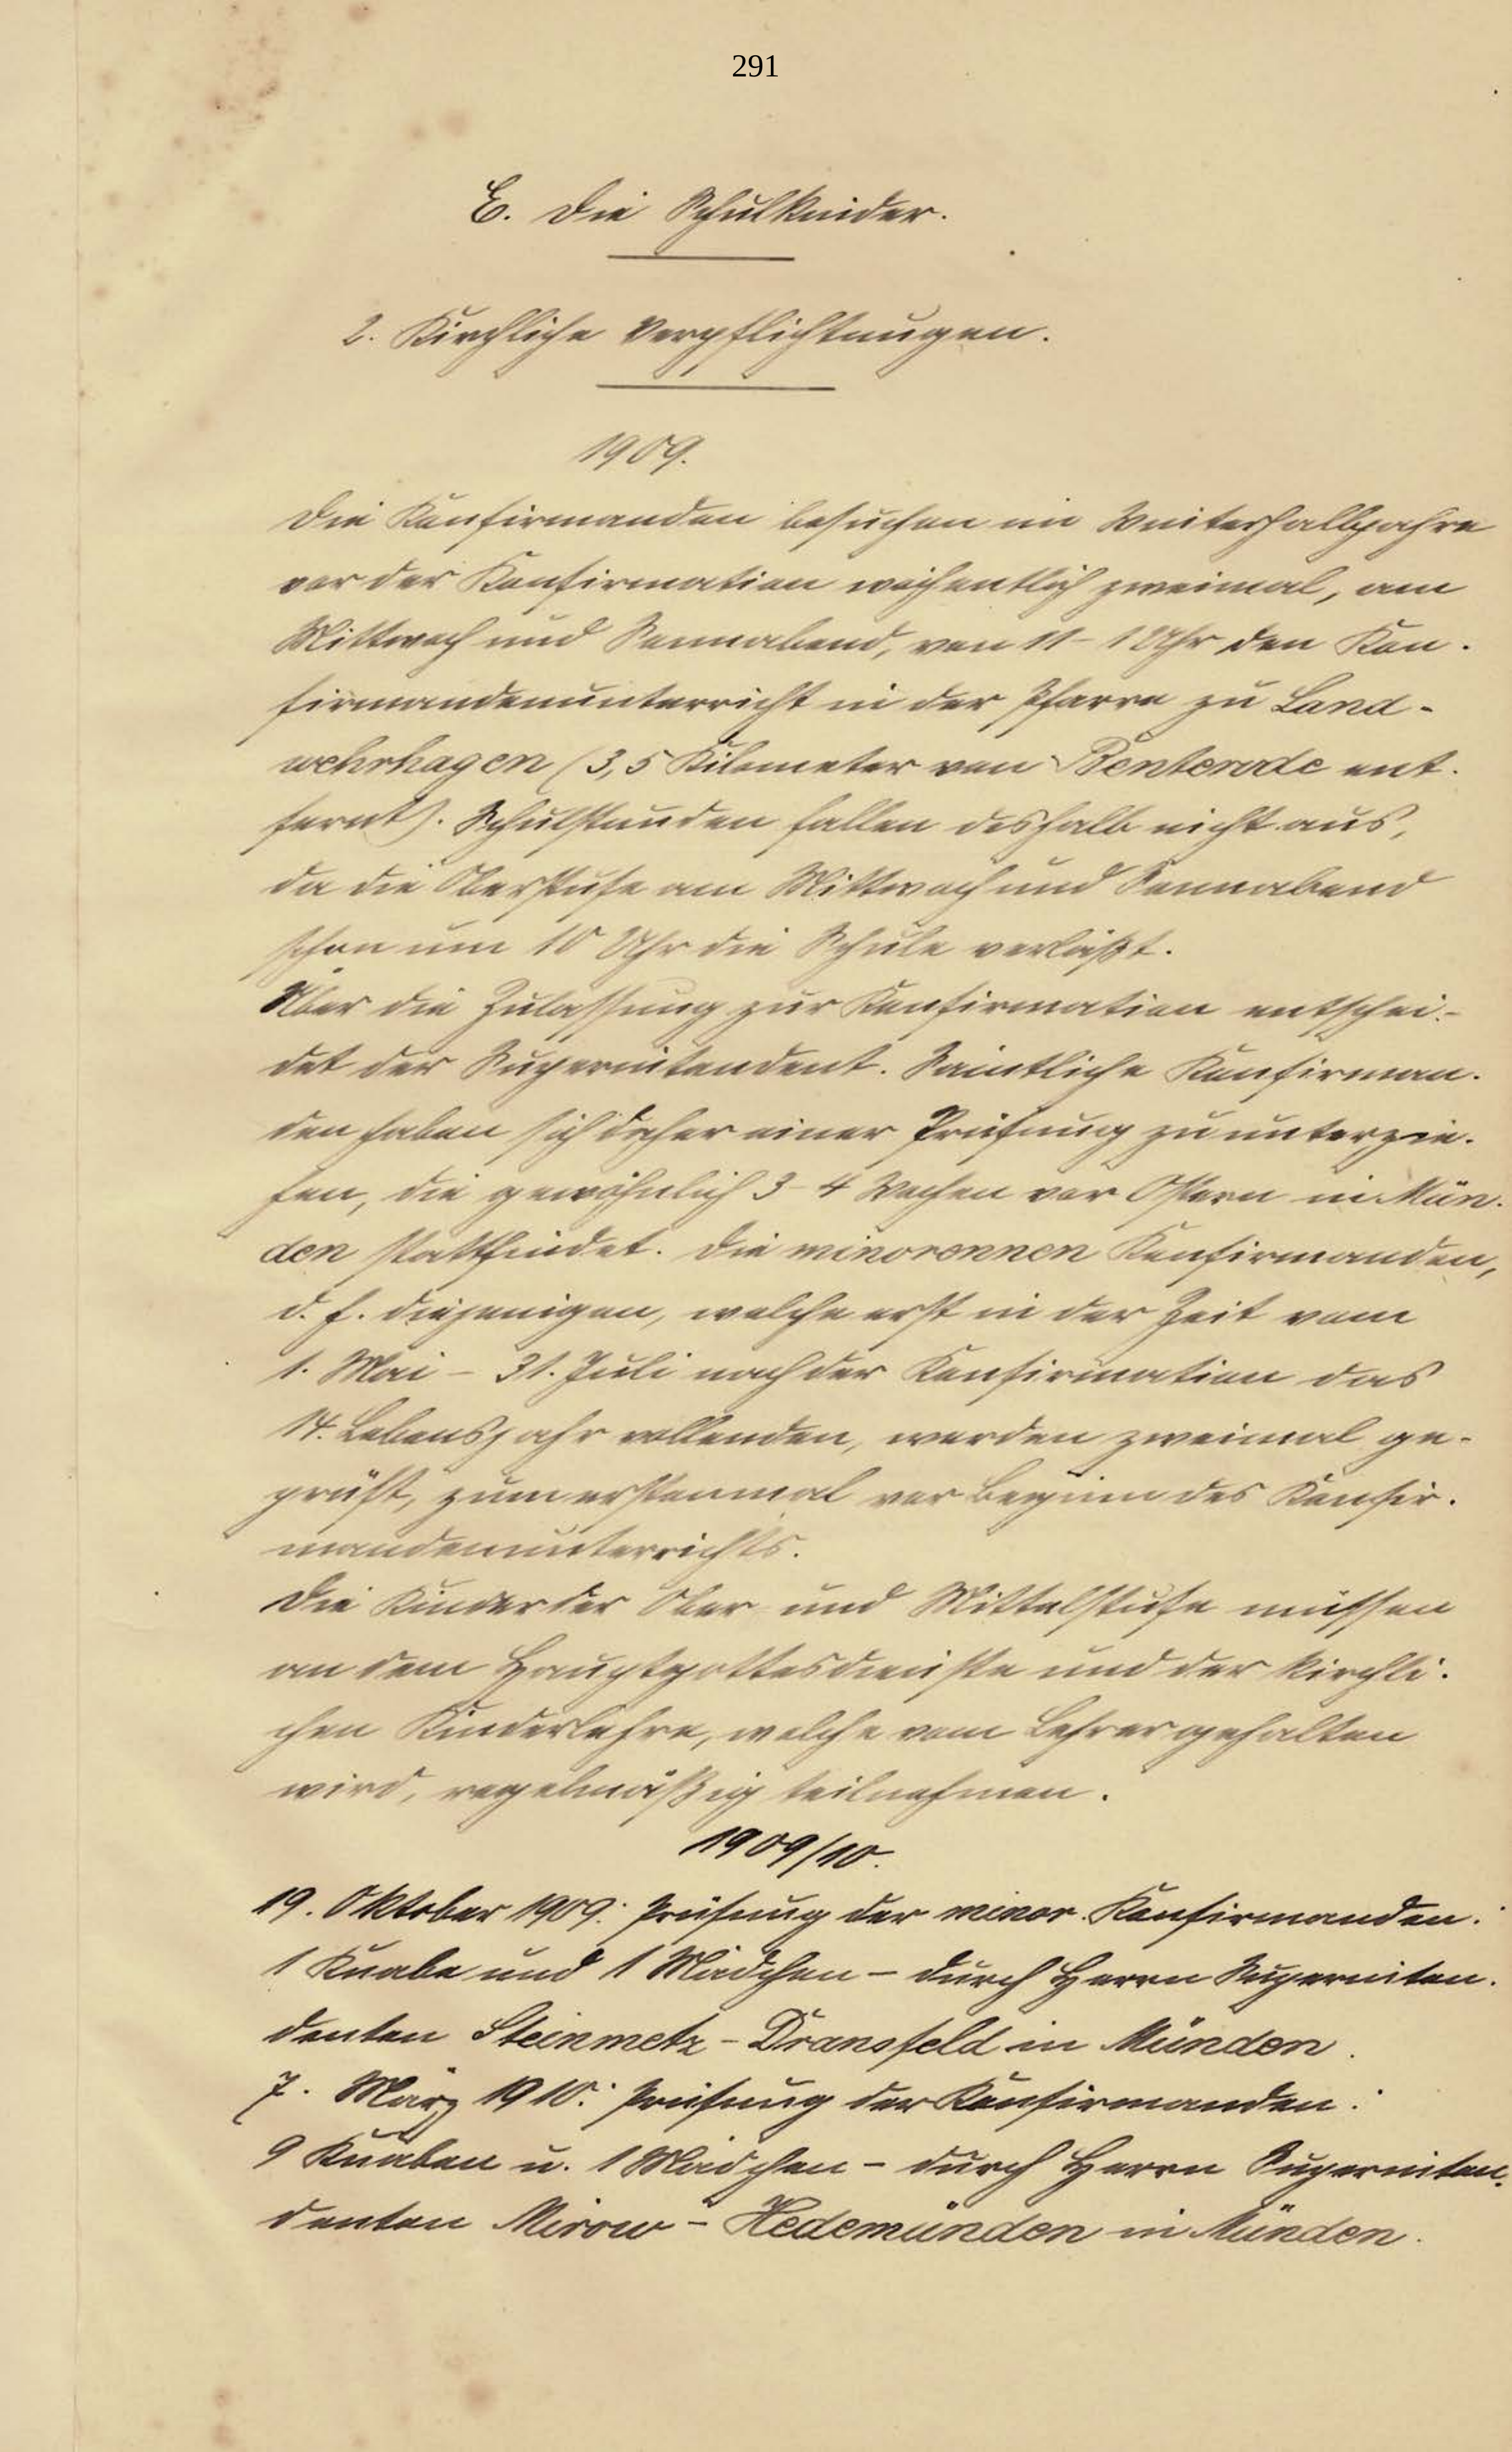 291
E. Die Schulkinder.
2. Kirchliche Verpflichtungen.
1909.
Die Konfirmanden besuchen im Winterhalbjahre
vor der Konfirmation wöchentlich zweimal, am
Mittwoch und Sonnabend, von 11-1 Uhr den Kon-
firmandenunterricht in der Pfarre zu Land-
wehrhagen (3,5 Kilometer von Benterode ent-
fernt). Schulstunden fallen deshalb nicht aus,
da die Oberstufe am Mittwoch und Sonnabend
schon um 10 Uhr die Schule verläßt.
Über die Zulassung zur Konfirmation entschei-
det der Superintendent. Sämtliche Konfirman-
den haben sich daher einer Prüfung zu unterzie-
hen, die gewöhnlich 3-4 Wochen vor Ostern in Mün-
den stattfindet. Die minorennen Konfirmanden,
d. h. diejenigen, welche erst in der Zeit vom
1. Mai - 31. Juli nach der Konfirmation das
14. Lebensjahr vollenden, werden zweimal ge-
prüft, zum erstenmal vor Beginn des Konfir-
mandenunterrichts.
Die Kinder der Ober- und Mittelstufe müssen
an dem Hauptgottesdienste und der kirchli-
chen Kinderlehre, welche vom Lehrer gehalten
wird, regelmäßig teilnehmen.
1909/10.
19. Oktober 1909: Prüfung der minor. Konfirmanden:
1 Knabe und 1 Mädchen - durch Herrn Superinten-
denten Steinmetz - Dransfeld in Münden.
7. März 1910: Prüfung der Konfirmanden:
9 Knaben u. 1 Mädchen - durch Herrn Superinten-
denten Mirow - Hedemünden in Münden.